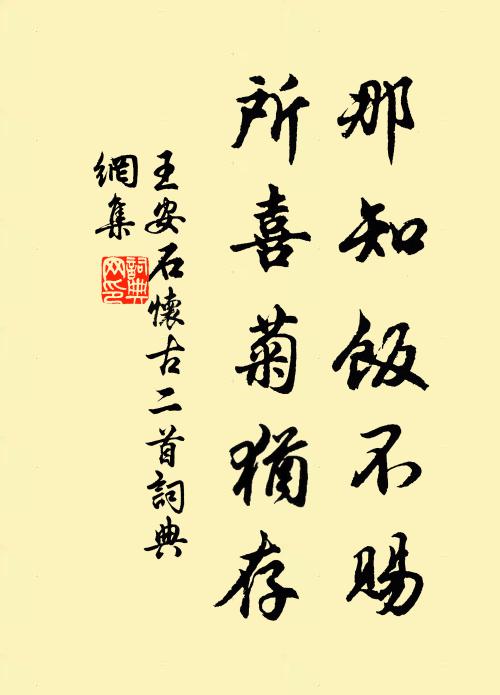 那知飯不賜
所喜菊猶存
王安石懷古二首詞典
網集
詞典網印